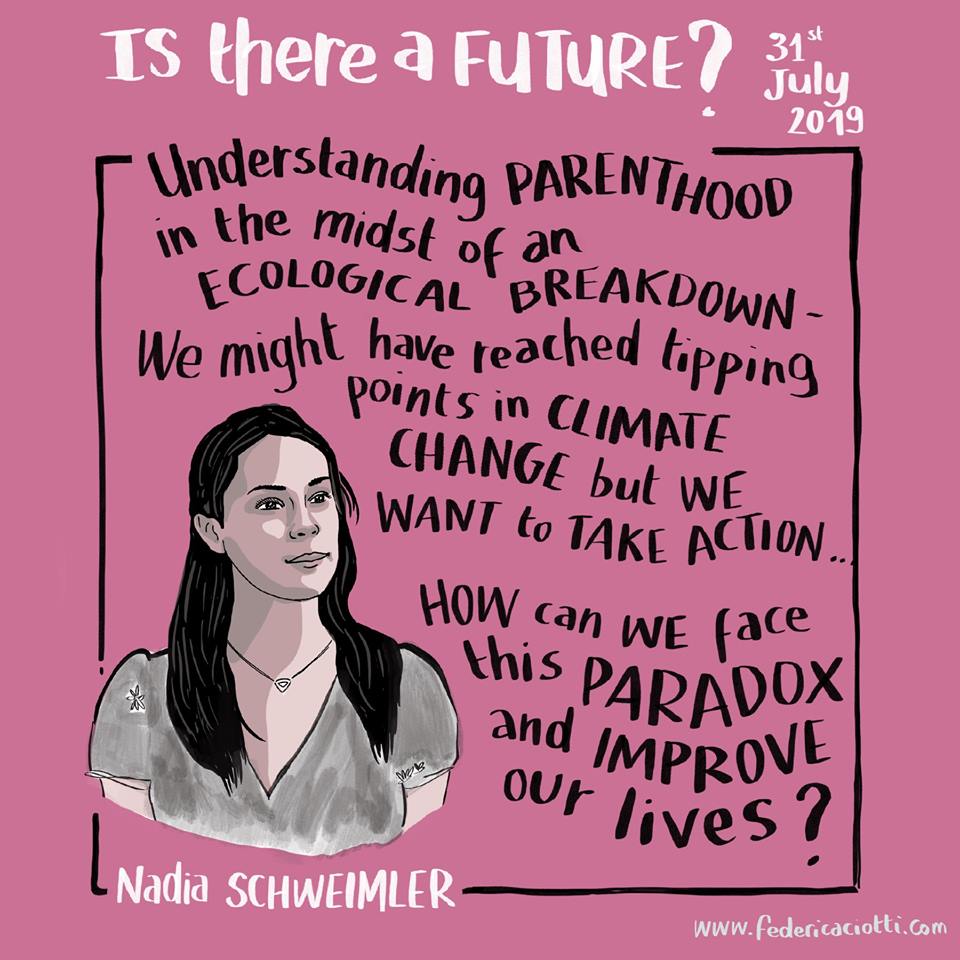 Is there a FUTURE?
31st
July
2019
Understanding PARENTHOOD
in the midst of an
ECOLOGICAL BREAKDOWN -
We might have reached tipping
points in CLIMATE
CHANGE but WE
WANT to TAKE ACTION...
HOW can WE face
this PARADOX
and IMPROVE
our lives?
Nadia SCHWEIMLER
www.federicaciotti.com